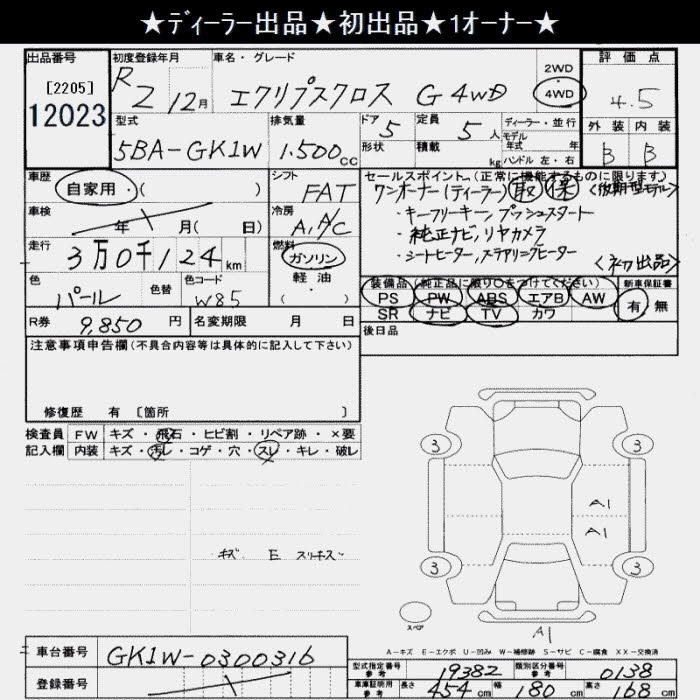 ★ディーラー出品★初出品★1オーナー★
出品番号 初度登録年月 車名・グレード 2WD 評価点
[2205] R2 12月 エクリプスクロス G 4WD 4WD 4.5
12023
型式 排気量 ドア 定員 ディーラー・並行 外装 内装
5BA-GK1W 1.500cc 5 5人 モデル年式 年 B B
形状 積載 kg ハンドル 左・右
車歴 シフト セールスポイント。(正常に機能するものに限ります)
自家用・( ) FAT ワンオーナー(ディーラー) 取 保 <後期型モデル>
車検 冷房 ・キーフリーキー、プッシュスタート
年 月( 日) A,A/C ・純正ナビ、リヤカメラ
走行 燃料 ・シートヒーター、ステアリングヒーター
3万0千124km ガソリン <初出品>
色 色替 色コード 軽油 装備品(純正品に限り○をつけてください) 新車保証書
パール W85 ・( ) PS PW ABS エアB AW 有 無
SR ナビ TV カワ
R券 9,850円 名変期限 月 日 後日品
注意事項申告欄(不具合内容等は具体的に記入して下さい)
修復歴 有 [箇所 ]
検査員 FW キズ・飛石・ヒビ割・リペア跡・×要
記入欄 内装 キズ・汚レ・コゲ・穴・スレ・キレ・破レ
3 3
A1
A1
キズ E スリキズ
3 3
スペア
A1
A-キズ E-エクボ U-凹み W-補修跡 S-サビ C-腐食 XX-交換済
車台番号 GK1W-0300316
型式指定番号 参考 19382 類別区分番号 参考 0138
登録番号
車庫証明用 参考 長さ 454cm 幅 180cm 高さ 168cm